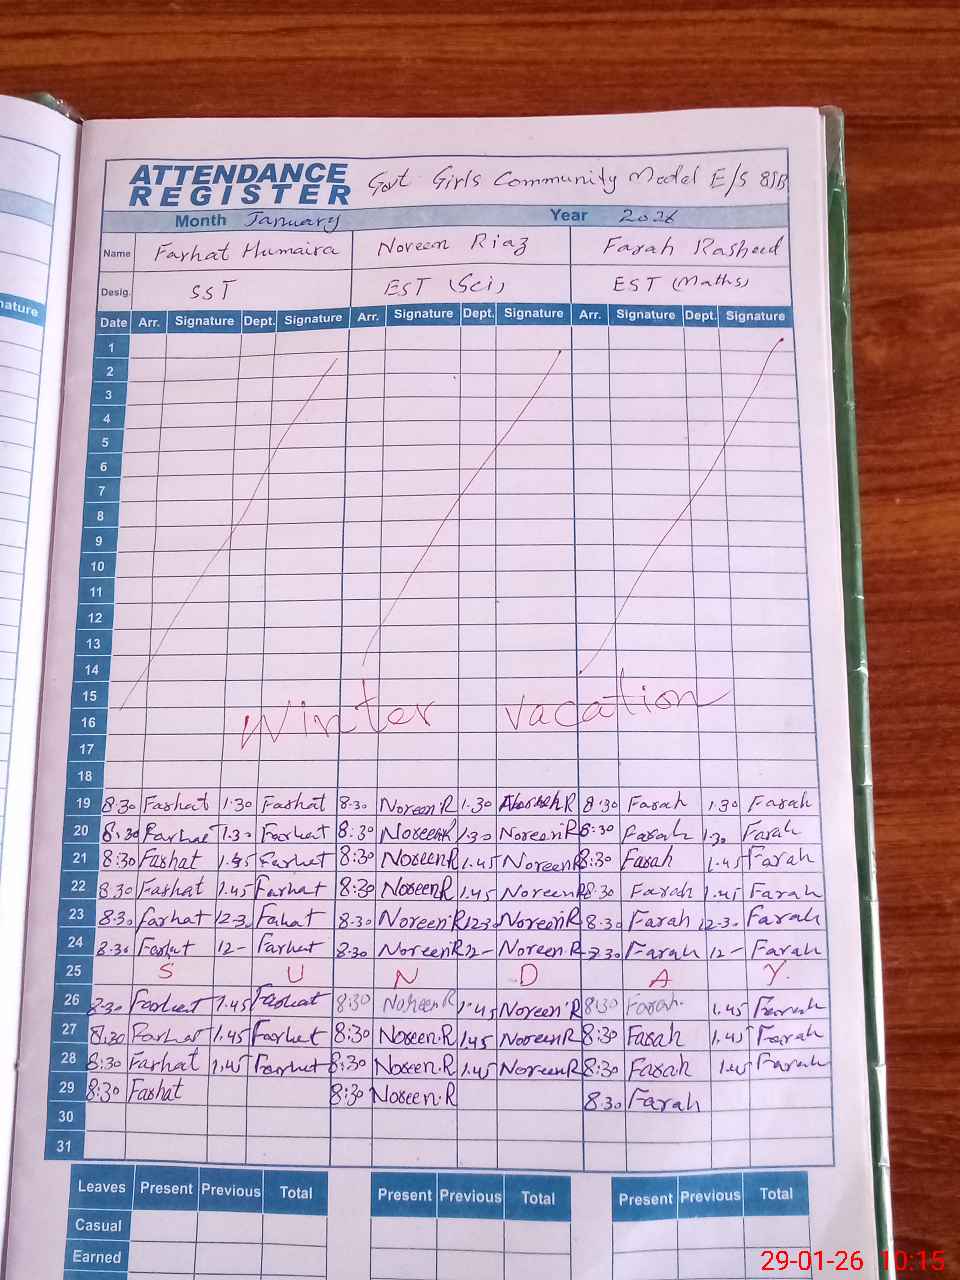 nature
ATTENDANCE REGISTER Govt Girls Community Model E/S 8JB
Month January Year 2026
Name Farhat Humaira Noreen Riaz Farah Rasheed
Desig. SST EST (Sci) EST (Maths)
Date Arr. Signature Dept. Signature Arr. Signature Dept. Signature Arr. Signature Dept. Signature
1
2
3
4
5
6
7
8
9
10
11
12
13
14
15
16 Winter vacation
17
18
19 8:30 Farhat 1.30 Farhat 8:30 Noreen.R 1.30 Noreen.R 8:30 Farah 1.30 Farah
20 8:30 Farhat 1.30 Farhat 8:30 Noreen.R 1.30 Noreen.R 8:30 Farah 1.30 Farah
21 8:30 Farhat 1.45 Farhat 8:30 Noreen.R 1.45 Noreen.R 8:30 Farah 1.45 Farah
22 8.30 Farhat 1.45 Farhat 8:30 Noreen.R 1.45 Noreen.R 8.30 Farah 1.45 Farah
23 8.30 Farhat 12-30 Farhat 8.30 Noreen.R 12-30 Noreen.R 8.30 Farah 12-30 Farah
24 8.30 Farhat 12- Farhat 8.30 Noreen.R 12- Noreen.R 8.30 Farah 12- Farah
25 S U N D A Y.
26 8.30 Farhat 1.45 Farhat 8:30 Noreen R 1.45 Noreen.R 8:30 Farah. 1.45 Farah
27 8:30 Farhat 1.45 Farhat 8:30 Noreen.R 1.45 Noreen.R 8:30 Farah 1.45 Farah
28 8:30 Farhat 1.45 Farhat 8:30 Noreen.R 1.45 Noreen.R 8:30 Farah 1.45 Farah
29 8:30 Farhat 8:30 Noreen.R 8.30 Farah
30
31
Leaves Present Previous Total Present Previous Total Present Previous Total
Casual
Earned
29-01-26 10:15